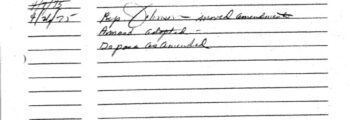 4/26/75 Rep. — moved amendment
Amend adopted —
Do pass as Amended